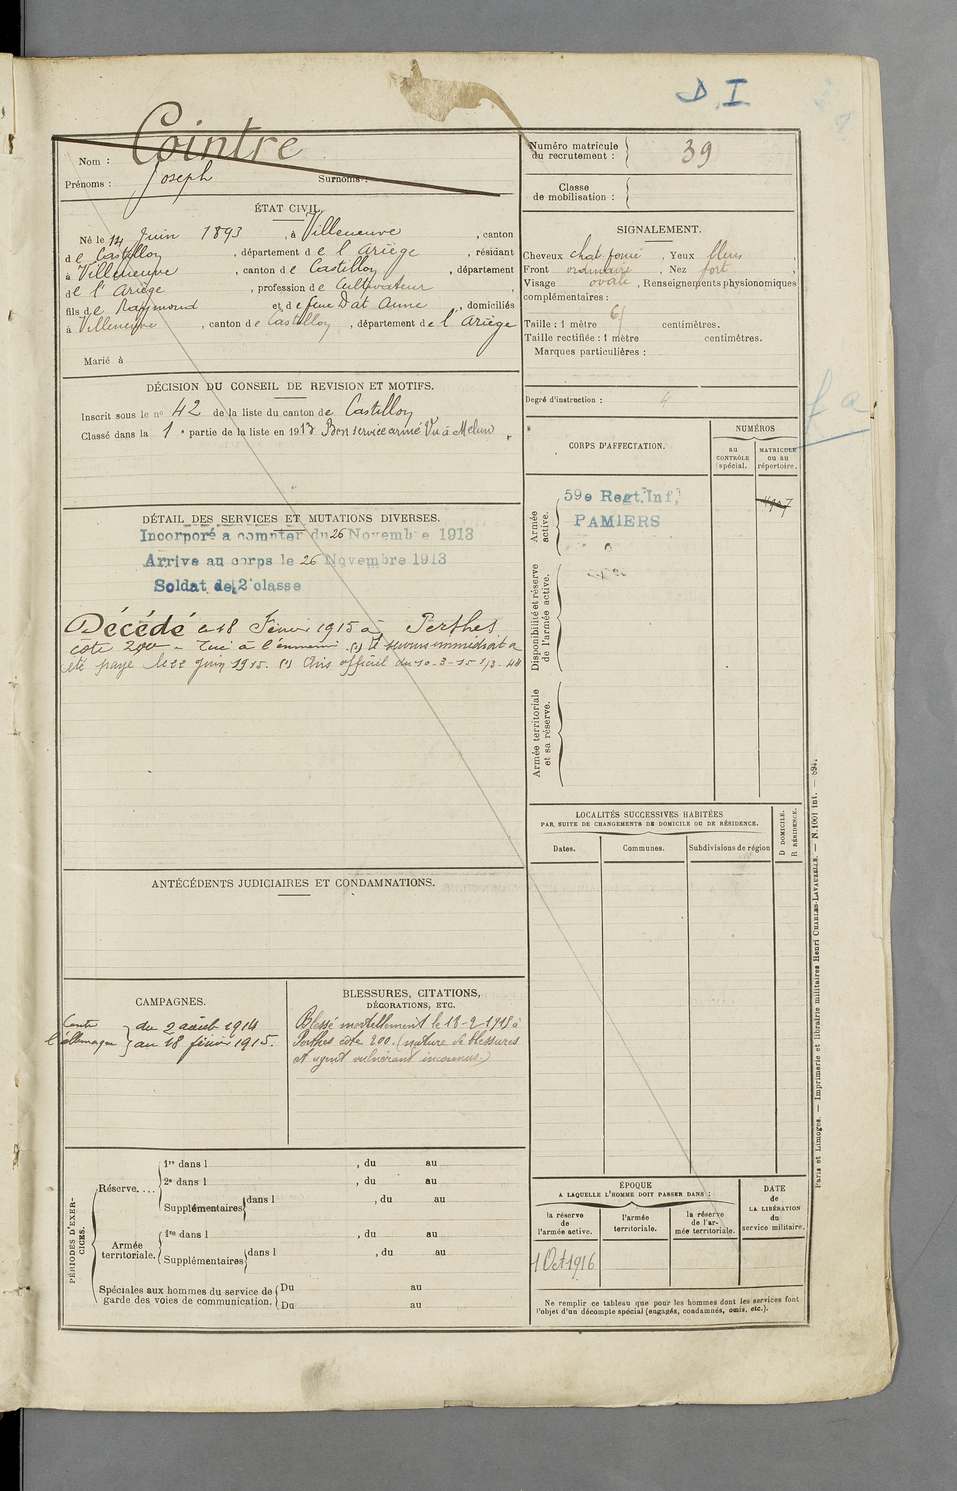 D, I
Nom : Cointre
Prénoms : Joseph Surnoms :
ÉTAT CIVIL.
Né le 14 Juin 1893, à Villeneuve, canton
de Castillon, département de l'Ariège, résidant
à Villeneuve, canton de Castillon, département
de l'Ariège, profession de Cultivateur,
fils de Raymond et de feue Dat Anne, domiciliés
à Villeneuve, canton de Castillon, département de l'Ariège
Marié à
DÉCISION DU CONSEIL DE REVISION ET MOTIFS.
Inscrit sous le no 42 de la liste du canton de Castillon
Classé dans la 1e partie de la liste en 1913 Bon service armé Vu à Melun.
DÉTAIL DES SERVICES ET MUTATIONS DIVERSES.
Incorporé à compter du 26 Novembre 1913
Arrivé au corps le 26 Novembre 1913
Soldat de 2e classe
Décédé le 18 Février 1915 à Perthes
côte 200 - Tué à l'ennemi. (1) le secours immédiat a
été payé le 22 Juin 1915. (1) Avis officiel du 10-3-15
ANTÉCÉDENTS JUDICIAIRES ET CONDAMNATIONS.
CAMPAGNES.
Contre l'Allemagne } du 2 août 1914
au 18 février 1915.
BLESSURES, CITATIONS,
DÉCORATIONS, ETC.
Blessé mortellement le 18-2-1915 à
Perthes côte 200. (nature de blessures
et agent vulnérant inconnus.)
PÉRIODES D'EXERCICES.
Réserve....
1re dans l , du au
2e dans l , du au
Supplémentaires dans l , du au
Armée territoriale.
1re dans l , du au
Supplémentaires dans l , du au
Spéciales aux hommes du service de garde des voies de communication.
Du au
Du au
Numéro matricule du recrutement : 39
Classe de mobilisation :
SIGNALEMENT.
Cheveux chat foncé, Yeux bleus,
Front ordinaire, Nez fort,
Visage ovale, Renseignements physionomiques
complémentaires :
Taille : 1 mètre 61 centimètres.
Taille rectifiée : 1 mètre centimètres.
Marques particulières :
Degré d'instruction : 4
CORPS D'AFFECTATION.
NUMÉROS
au CONTRÔLE spécial.
MATRICULE ou au répertoire.
Armée active.
59e Regt. Inf.
PAMIERS
Disponibilité et réserve de l'armée active.
Armée territoriale et sa réserve.
LOCALITÉS SUCCESSIVES HABITÉES
PAR SUITE DE CHANGEMENTS DE DOMICILE OU DE RÉSIDENCE.
Dates. Communes. Subdivisions de région
D DOMICILE.
R RÉSIDENCE.
ÉPOQUE
A LAQUELLE L'HOMME DOIT PASSER DANS :
la réserve de l'armée active.
l'armée territoriale.
la réserve de l'armée territoriale.
DATE de LA LIBÉRATION du service militaire.
1 Oct 1916
Ne remplir ce tableau que pour les hommes dont les services font
l'objet d'un décompte spécial (engagés, condamnés, omis, etc.).
Paris et Limoges. — Imprimerie et librairie militaires Henri CHARLES-LAVAUZELLE. — N. 1001 int.